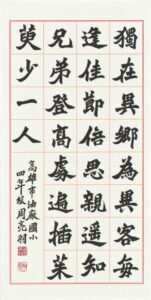 獨在異鄉為異客每
逢佳節倍思親遙知
兄弟登高處遍插茱
萸少一人
高雄市油廠國小
四年級周亮羽